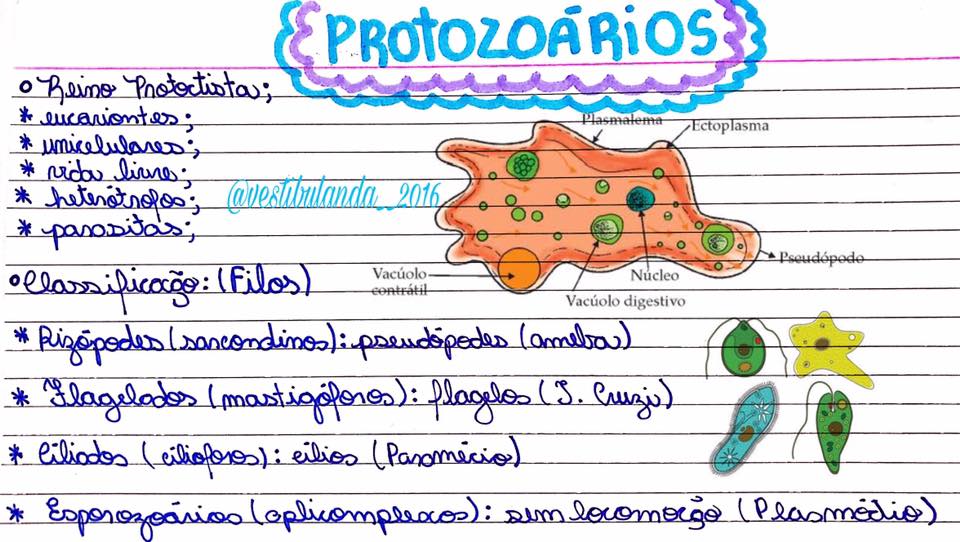 PROTOZOÁRIOS
Reino Protoctista;
* eucariontes;
* unicelulares;
* vida livre;
* heterótrofos;
* parasitas;
@vestibulanda__2016
Plasmalema
Ectoplasma
Pseudópodo
Núcleo
Vacúolo digestivo
Vacúolo contrátil
Classificação: (Filos)
* Rizópodes (sarcondinos): pseudópodes (ameba)
* Flagelados (mastigóforos): flagelos (T. Cruzi)
* Ciliados (cilioforos): cílios (Paramécio)
* Esporozoários (aplicomplexos): sem locomoção (Plasmódio)